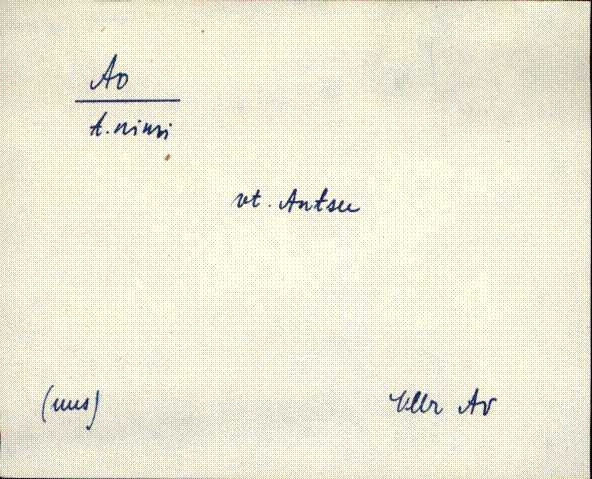 Ao
t. nimi
vt. Antsu
(uus) Vllr Av